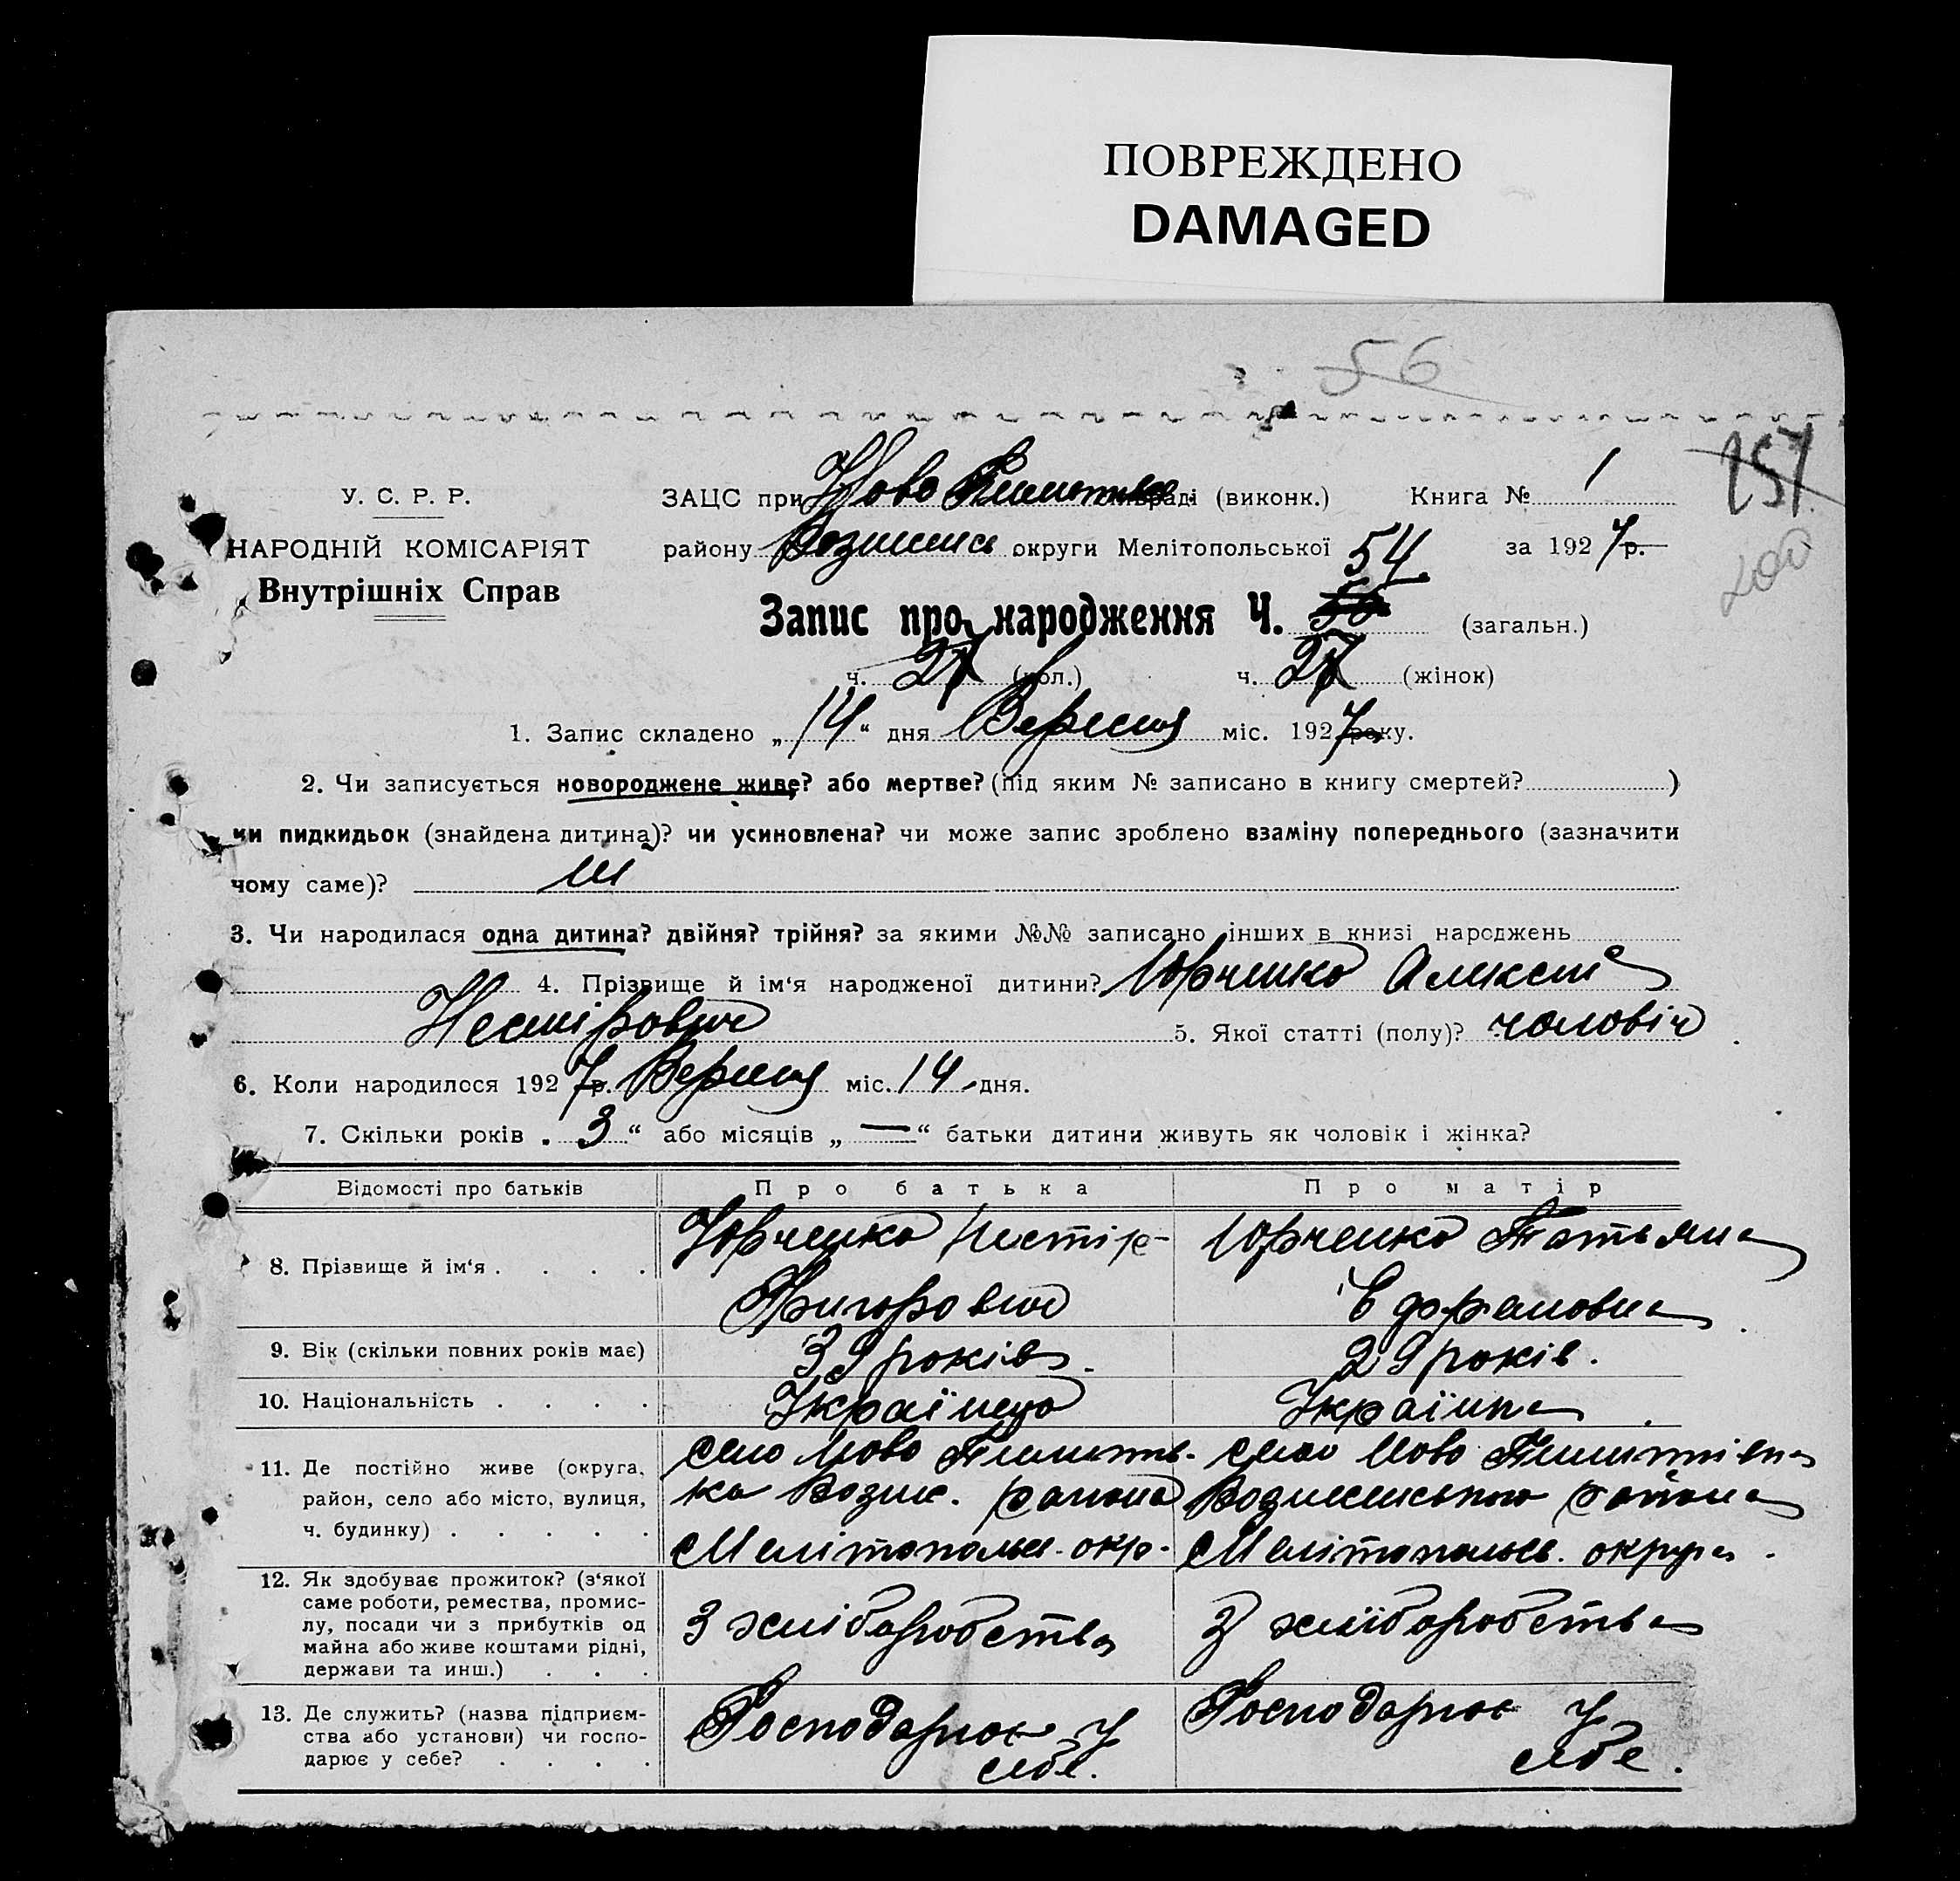 ПОВРЕЖДЕНО
DAMAGED
56
У. С. Р. Р.
НАРОДНІЙ КОМІСАРІЯТ
Внутрішніх Справ
ЗАЦС при Ново раді (виконк.) Книга № 1
157
району округи Мелітопольської за 1927 р.
200
54
Запис про народження Ч. (загальн.)
ч. 27 (пол.) ч. 27 (жінок)
1. Запис складено „14“ дня Вересня міс. 1927 року.
2. Чи записується новороджене живе? або мертве? (під яким № записано в книгу смертей? )
чи пидкидьок (знайдена дитина)? чи усиновлена? чи може запис зроблено взаміну попереднього (зазначити
чому саме)? ні
3. Чи народилася одна дитина? двійня? трійня? за якими №№ записано інших в книзі народжень
4. Прізвище й ім‘я народженої дитини? Юрченко Аликсей
Нестірович 5. Якої статті (полу)? чоловіч
6. Коли народилося 1927 р. Вересня міс. 14 дня.
7. Скільки років „3“ або місяців „—“ батьки дитини живуть як чоловік і жінка?
Відомості про батьків Про батька Про матір
8. Прізвище й ім‘я . . . . Юрченко Нестір Григорович Юрченко Татьяна Ефремовна
9. Вік (скільки повних років має) 39 років. 29 років.
10. Національність . . . . Українець Українка.
11. Де постійно живе (округа, район, село або місто, вулиця, ч. будинку) . . . . . село Ново Пилипів-ка Возне. района Мелітопольс. окр. село Ново Пилипівка района Мелітопольсь. округа.
12. Як здобуває прожиток? (з‘якої саме роботи, ремества, промислу, посади чи з прибутків од майна або живе коштами рідні, держави та инш.) . . . З хліборобства З хліборобства
13. Де служить? (назва підприємства або установи) чи господарює у себе? . . . . Господарює у себе. Господарює у себе.